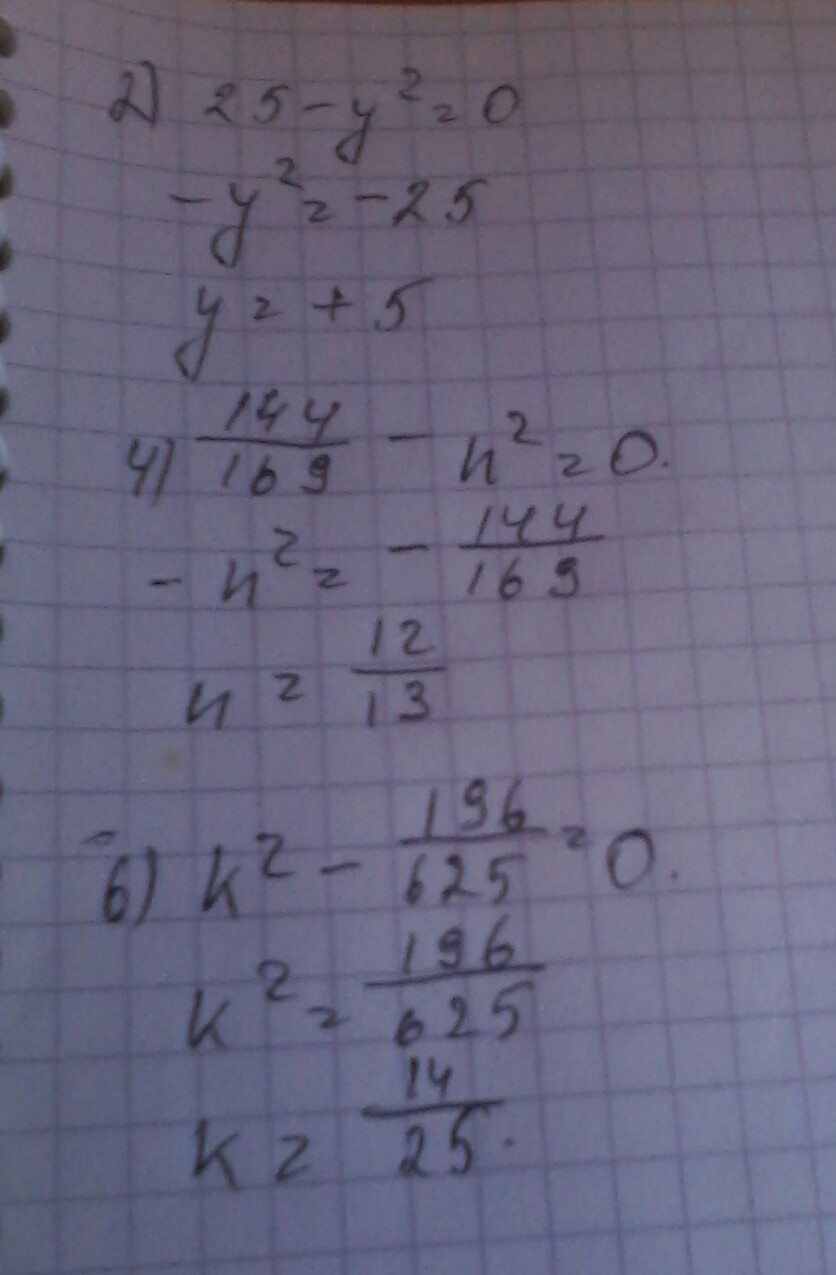 2) 25 - y² = 0
- y² = - 25
y = + 5
4) 144/169 - n² = 0.
- n² = - 144/169
n = 12/13
6) k² - 196/625 = 0.
k² = 196/625
k = 14/25.